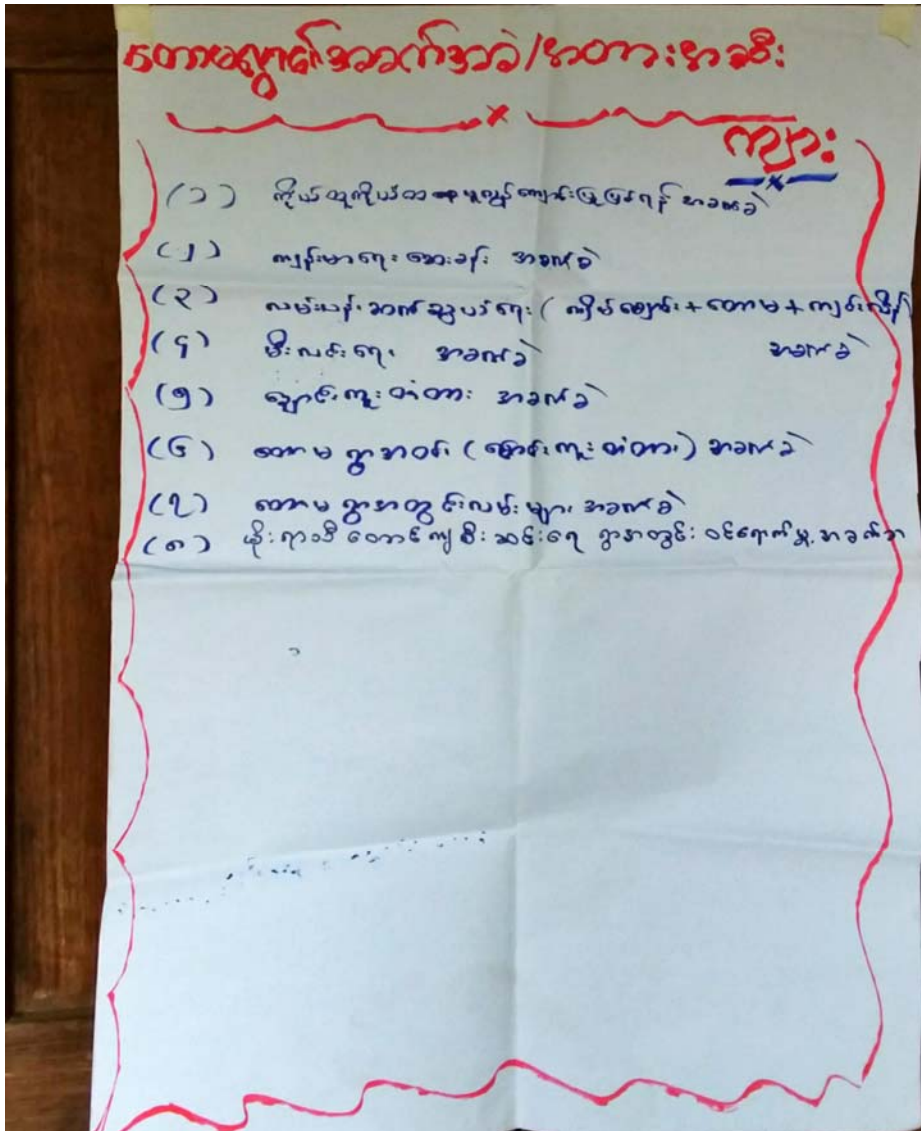 တောမရွာ၏အခက်အခဲ/အတားအဆီး
ကျား
(၁) ကိုယ်ထူကိုယ်ထ မူလွန်ကျောင်းပြုပြင်ရန် အခက်ခဲ
(၂) ကျန်းမာရေး ဆေးခန်း အခက်ခဲ
(၃) လမ်းပန်းဆက်သွယ်ရေး (
+ တောမ +
အခက်ခဲ
(၄) မီးလင်းရေး အခက်ခဲ
(၅) ချောင်းကူးတံတား အခက်ခဲ
(၆) တောမ ရွာအဝင် (ချောင်းကူးတံတား) အခက်ခဲ
(၇) တောမ ရွာအတွင်းလမ်းများ အခက်ခဲ
(၈) မိုးရာသီ တောင်ကျစီးဆင်းရေ ရွာအတွင်း ဝင်ရောက်မှု အခက်